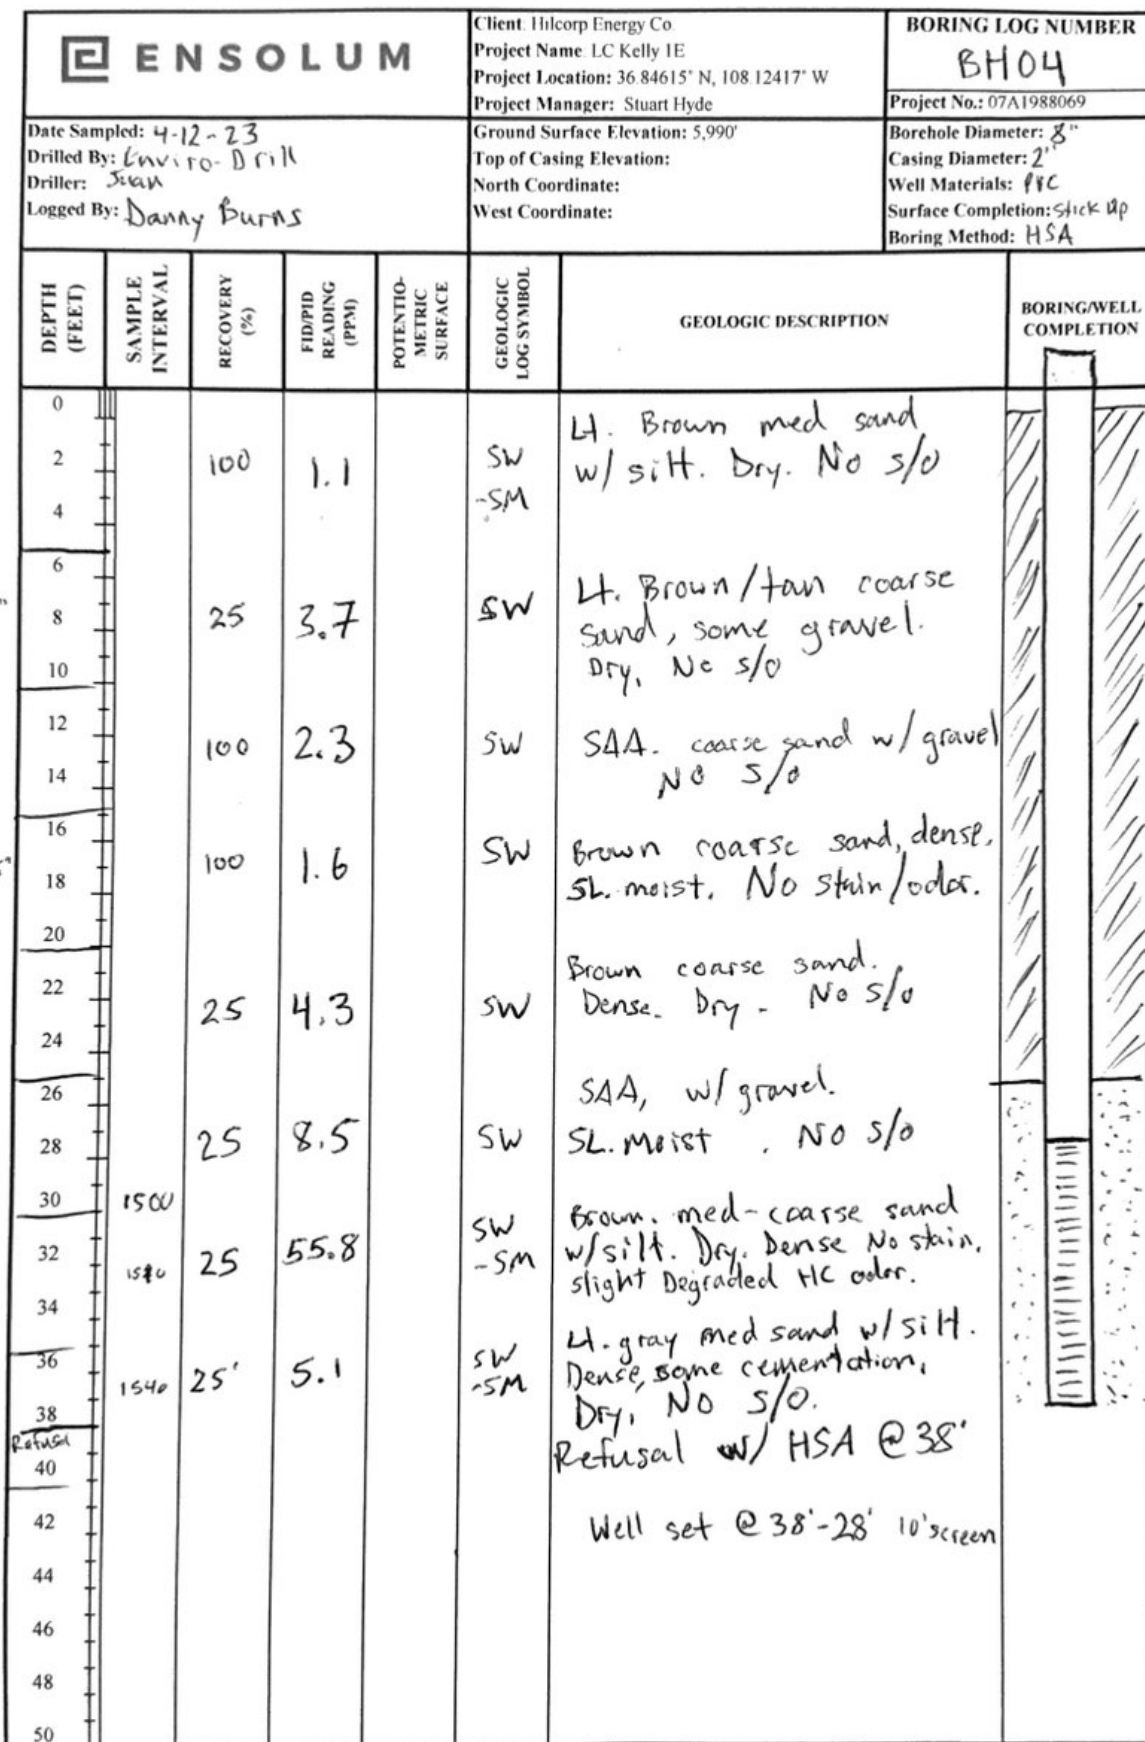 ENSOLUM
Client: Hilcorp Energy Co.
Project Name: LC Kelly 1E
Project Location: 36.84615° N, 108.12417° W
Project Manager: Stuart Hyde
BORING LOG NUMBER
BH04
Project No.: 07A1988069
Date Sampled: 4-12-23
Drilled By: Enviro-Drill
Driller: Juan
Logged By: Danny Burns
Ground Surface Elevation: 5,990'
Top of Casing Elevation:
North Coordinate:
West Coordinate:
Borehole Diameter: 8"
Casing Diameter: 2"
Well Materials: PVC
Surface Completion: Stick Up
Boring Method: HSA
DEPTH (FEET)
SAMPLE INTERVAL
RECOVERY (%)
FID/PID READING (PPM)
POTENTIO-METRIC SURFACE
GEOLOGIC LOG SYMBOL
GEOLOGIC DESCRIPTION
BORING/WELL COMPLETION
0
Lt. Brown med sand
2 100 1.1 SW w/ silt. Dry. No s/o
4 -SM
6
Lt. Brown/tan coarse
8 25 3.7 SW sand, some gravel.
10 Dry, No s/o
12 100 2.3 SW SAA. coarse sand w/ gravel
14 No s/o
16
100 1.6 SW Brown coarse sand, dense,
18 SL. moist. No stain/odor.
20
Brown coarse sand.
22 25 4.3 SW Dense. Dry - No s/o
24
26 SAA, w/ gravel.
28 25 8.5 SW SL. Moist. No s/o
30 1500
SW Brown. med-coarse sand
32 25 55.8 -SM w/silt. Dry. Dense No stain,
slight Degraded HC odor.
34
Lt. gray med sand w/ silt.
36 1540 25' 5.1 SW -SM Dense, some cementation,
38 Dry, NO S/O.
Refusal Refusal w/ HSA @ 38'
40
42 Well set @ 38'-28' 10' screen
44
46
48
50